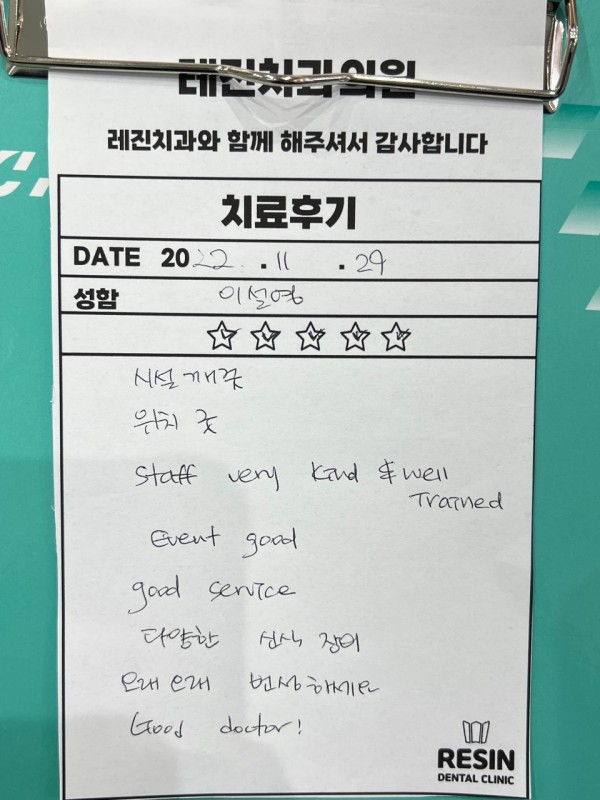 레진치과의원
레진치과와 함께 해주셔서 감사합니다
치료후기
DATE 2022 . 11 . 29
성함 이설영
시설 깨굿
위치 굿
Staff very kind & well
Trained
Event good
good service
다양한 신식 장비
오래오래 번상하세요
Good doctor!
RESIN
DENTAL CLINIC